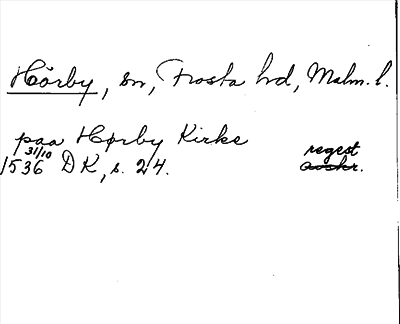 Hörby, sn, Frosta hd, Malm. l.
paa Hørby Kirke
31/10
1536 DK, s. 24. regest
avskr.